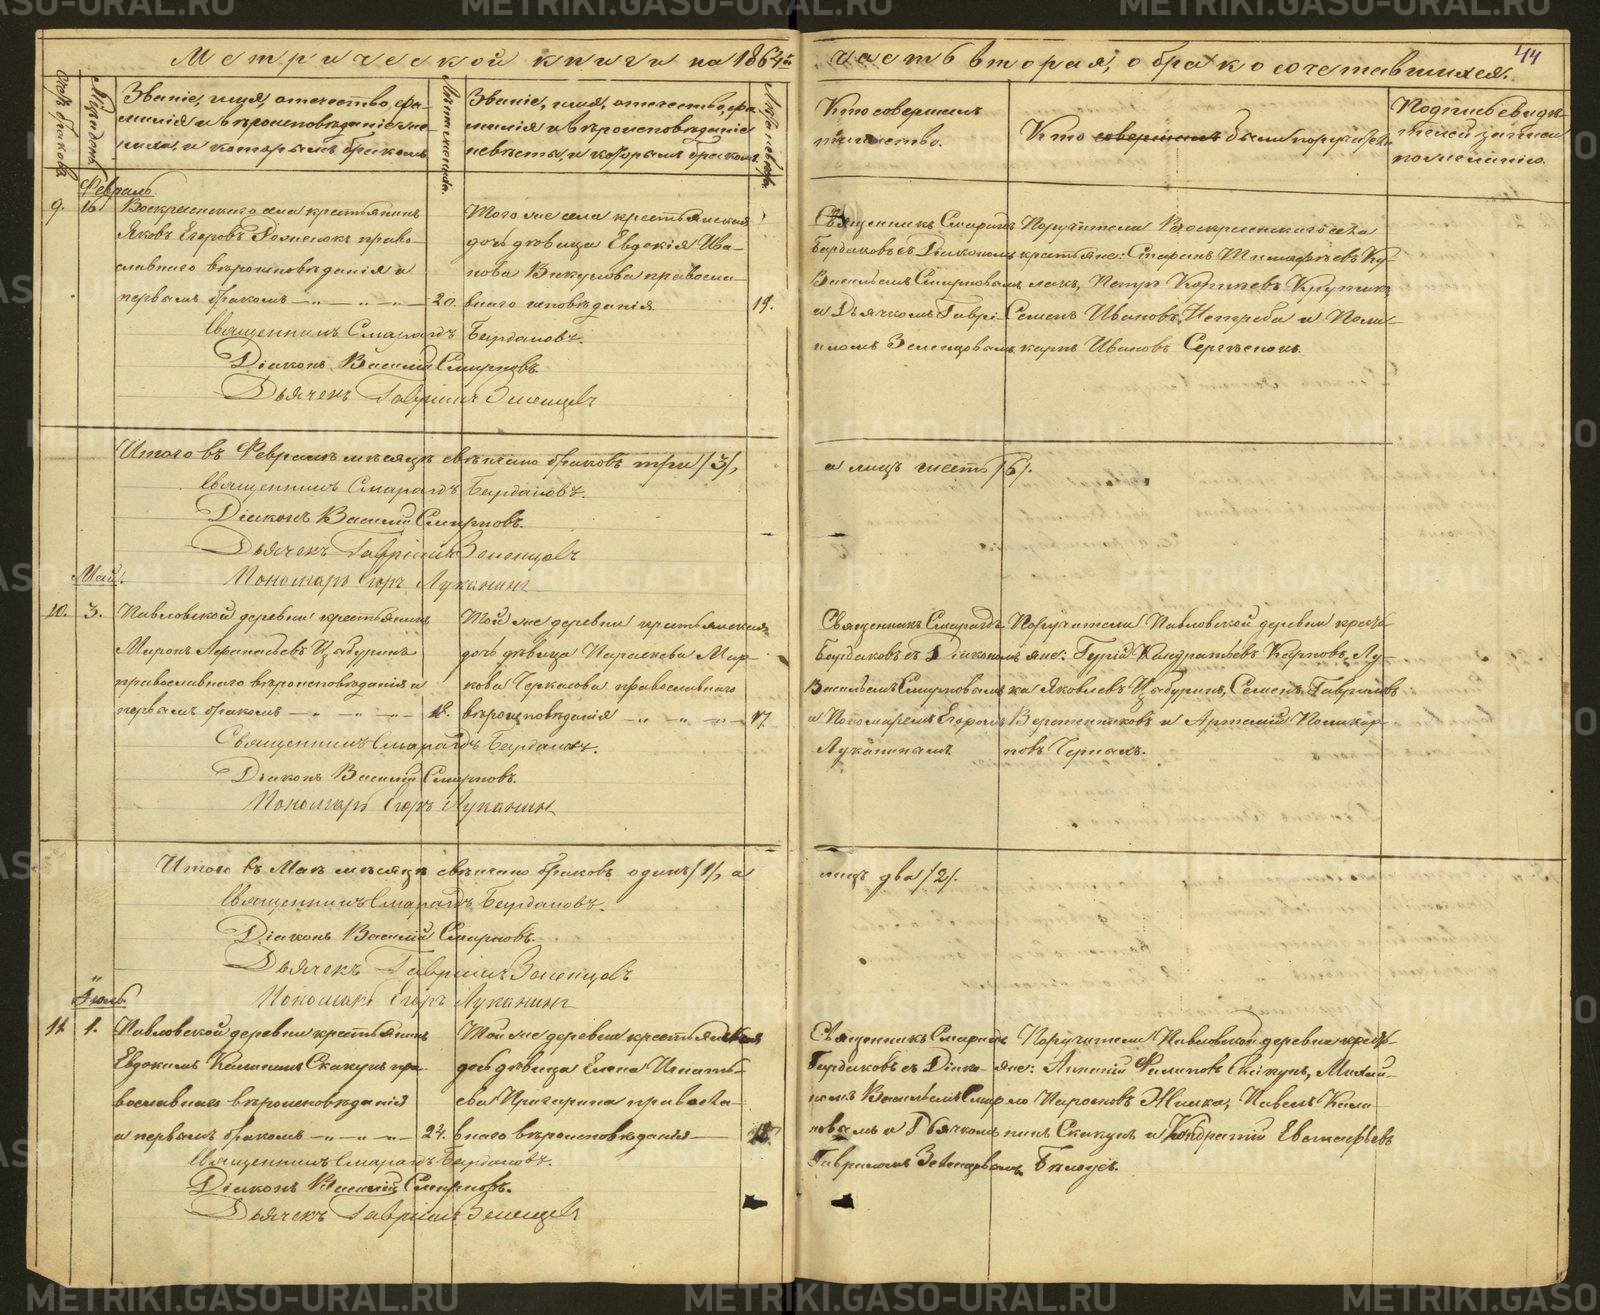 METRIKI.GASO-URAL.RU
44
Метрической книги на 1864й часть вторая, о бракосочетавшихся.
Счетъ браковъ
Мѣсяцъ и день
Званіе, имя, отчество, фа-
милія и вѣроисповѣданіе же-
ниха, и которымъ бракомъ
Лѣта жениха.
Званіе, имя, отчество, фа-
милія и вѣроисповѣданіе
невѣсты, и которымъ бракомъ.
Лѣта невѣсты.
Кто совершалъ
таинство.
Кто совершалъ были поручители
Подпись свидѣ-
телей записи
по желанію.
Февраль
9. 16
Воскресенскаго села крестьянинъ
Яковъ Егоровъ право-
славнаго вѣроисповѣданія и
первымъ бракомъ 20.
Того же села крестьянская
дочь дѣвица Евдокія Ива-
нова Викулова правосла-
внаго исповѣданія 19.
Священникъ Смарагдъ
Бардаковъ съ Діакономъ
Васильемъ Смирновымъ
и Дьячкомъ Гаврі-
иломъ Зеленцовымъ
Поручители Воскресенскаго села
крестьяне: Тимофѣевъ Ку-
лакъ, Петръ Крутикъ,
Семенъ Ивановъ Нетреба и Поли-
карпъ Ивановъ Сергѣенокъ.
Священникъ Смарагдъ Бардаковъ.
Діаконъ Василій Смирновъ
Дьячекъ Гавріилъ Зеленцовъ
Итого въ Февралѣ мѣсяцѣ свѣнчано браковъ три /3/,
а лицъ шесть /6/.
Священникъ Смарагдъ Бардаковъ.
Діаконъ Василій Смирновъ.
Дьячекъ Гавріилъ Зеленцовъ
Пономарь Егоръ Луканинъ
Май.
10. 3.
Павловской деревни крестьянинъ
Миронъ Афанасьевъ Цабуринъ
православнаго вѣроисповѣданія и
первымъ бракомъ 18.
Той же деревни крестьянская
дочь дѣвица Параскева Мар-
кова Черкасова православнаго
вѣроисповѣданія 17.
Священникъ Смарагдъ
Бардаковъ съ Діакономъ
Васильемъ Смирновымъ
и Пономаремъ Егоромъ
Луканинымъ
Поручители Павловской деревни кресть-
яне: Гурій Кондратьевъ Карповъ, Лу-
ка Яковлевъ Цабуринъ, Семенъ Гавриловъ
Веретенниковъ и Артемій Поликар-
повъ Чернахъ.
Священникъ Смарагдъ Бардаковъ.
Діаконъ Василій Смирновъ.
Пономарь Егоръ Луканинъ
Итого въ Маѣ мѣсяцѣ свѣнчано браковъ одинъ /1/, а
лицъ два /2/.
Священникъ Смарагдъ Бардаковъ.
Діаконъ Василій Смирновъ.
Дьячекъ Гавріилъ Зеленцовъ
Пономарь Егоръ Луканинъ
Іюль
11. 1.
Павловской деревни крестьянинъ
Евдокимъ Калининъ Скакунъ пра-
вославнаго вѣроисповѣданія
и первымъ бракомъ 24.
Той же деревни крестьянская
дочь дѣвица Елена Игнать-
ева правосла-
внаго вѣроисповѣданія 18.
Священникъ Смарагдъ
Бардаковъ съ Діако-
номъ Васильемъ Смир-
новымъ и Дьячкомъ
Гавріиломъ Зеленцовымъ
Поручители Павловской деревни кресть-
яне: Филиповъ Скакунъ, Михай-
ло Жилка, Павелъ Кали-
нинъ Скакунъ и Кондратій Евстафьевъ
Бѣлоусъ.
Священникъ Смарагдъ Бардаковъ.
Діаконъ Василій Смирновъ.
Дьячекъ Гавріилъ Зеленцовъ